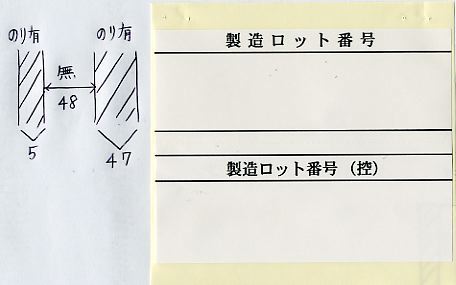 のり有 のり有
無
48
5 47
製造ロット番号
製造ロット番号（控）